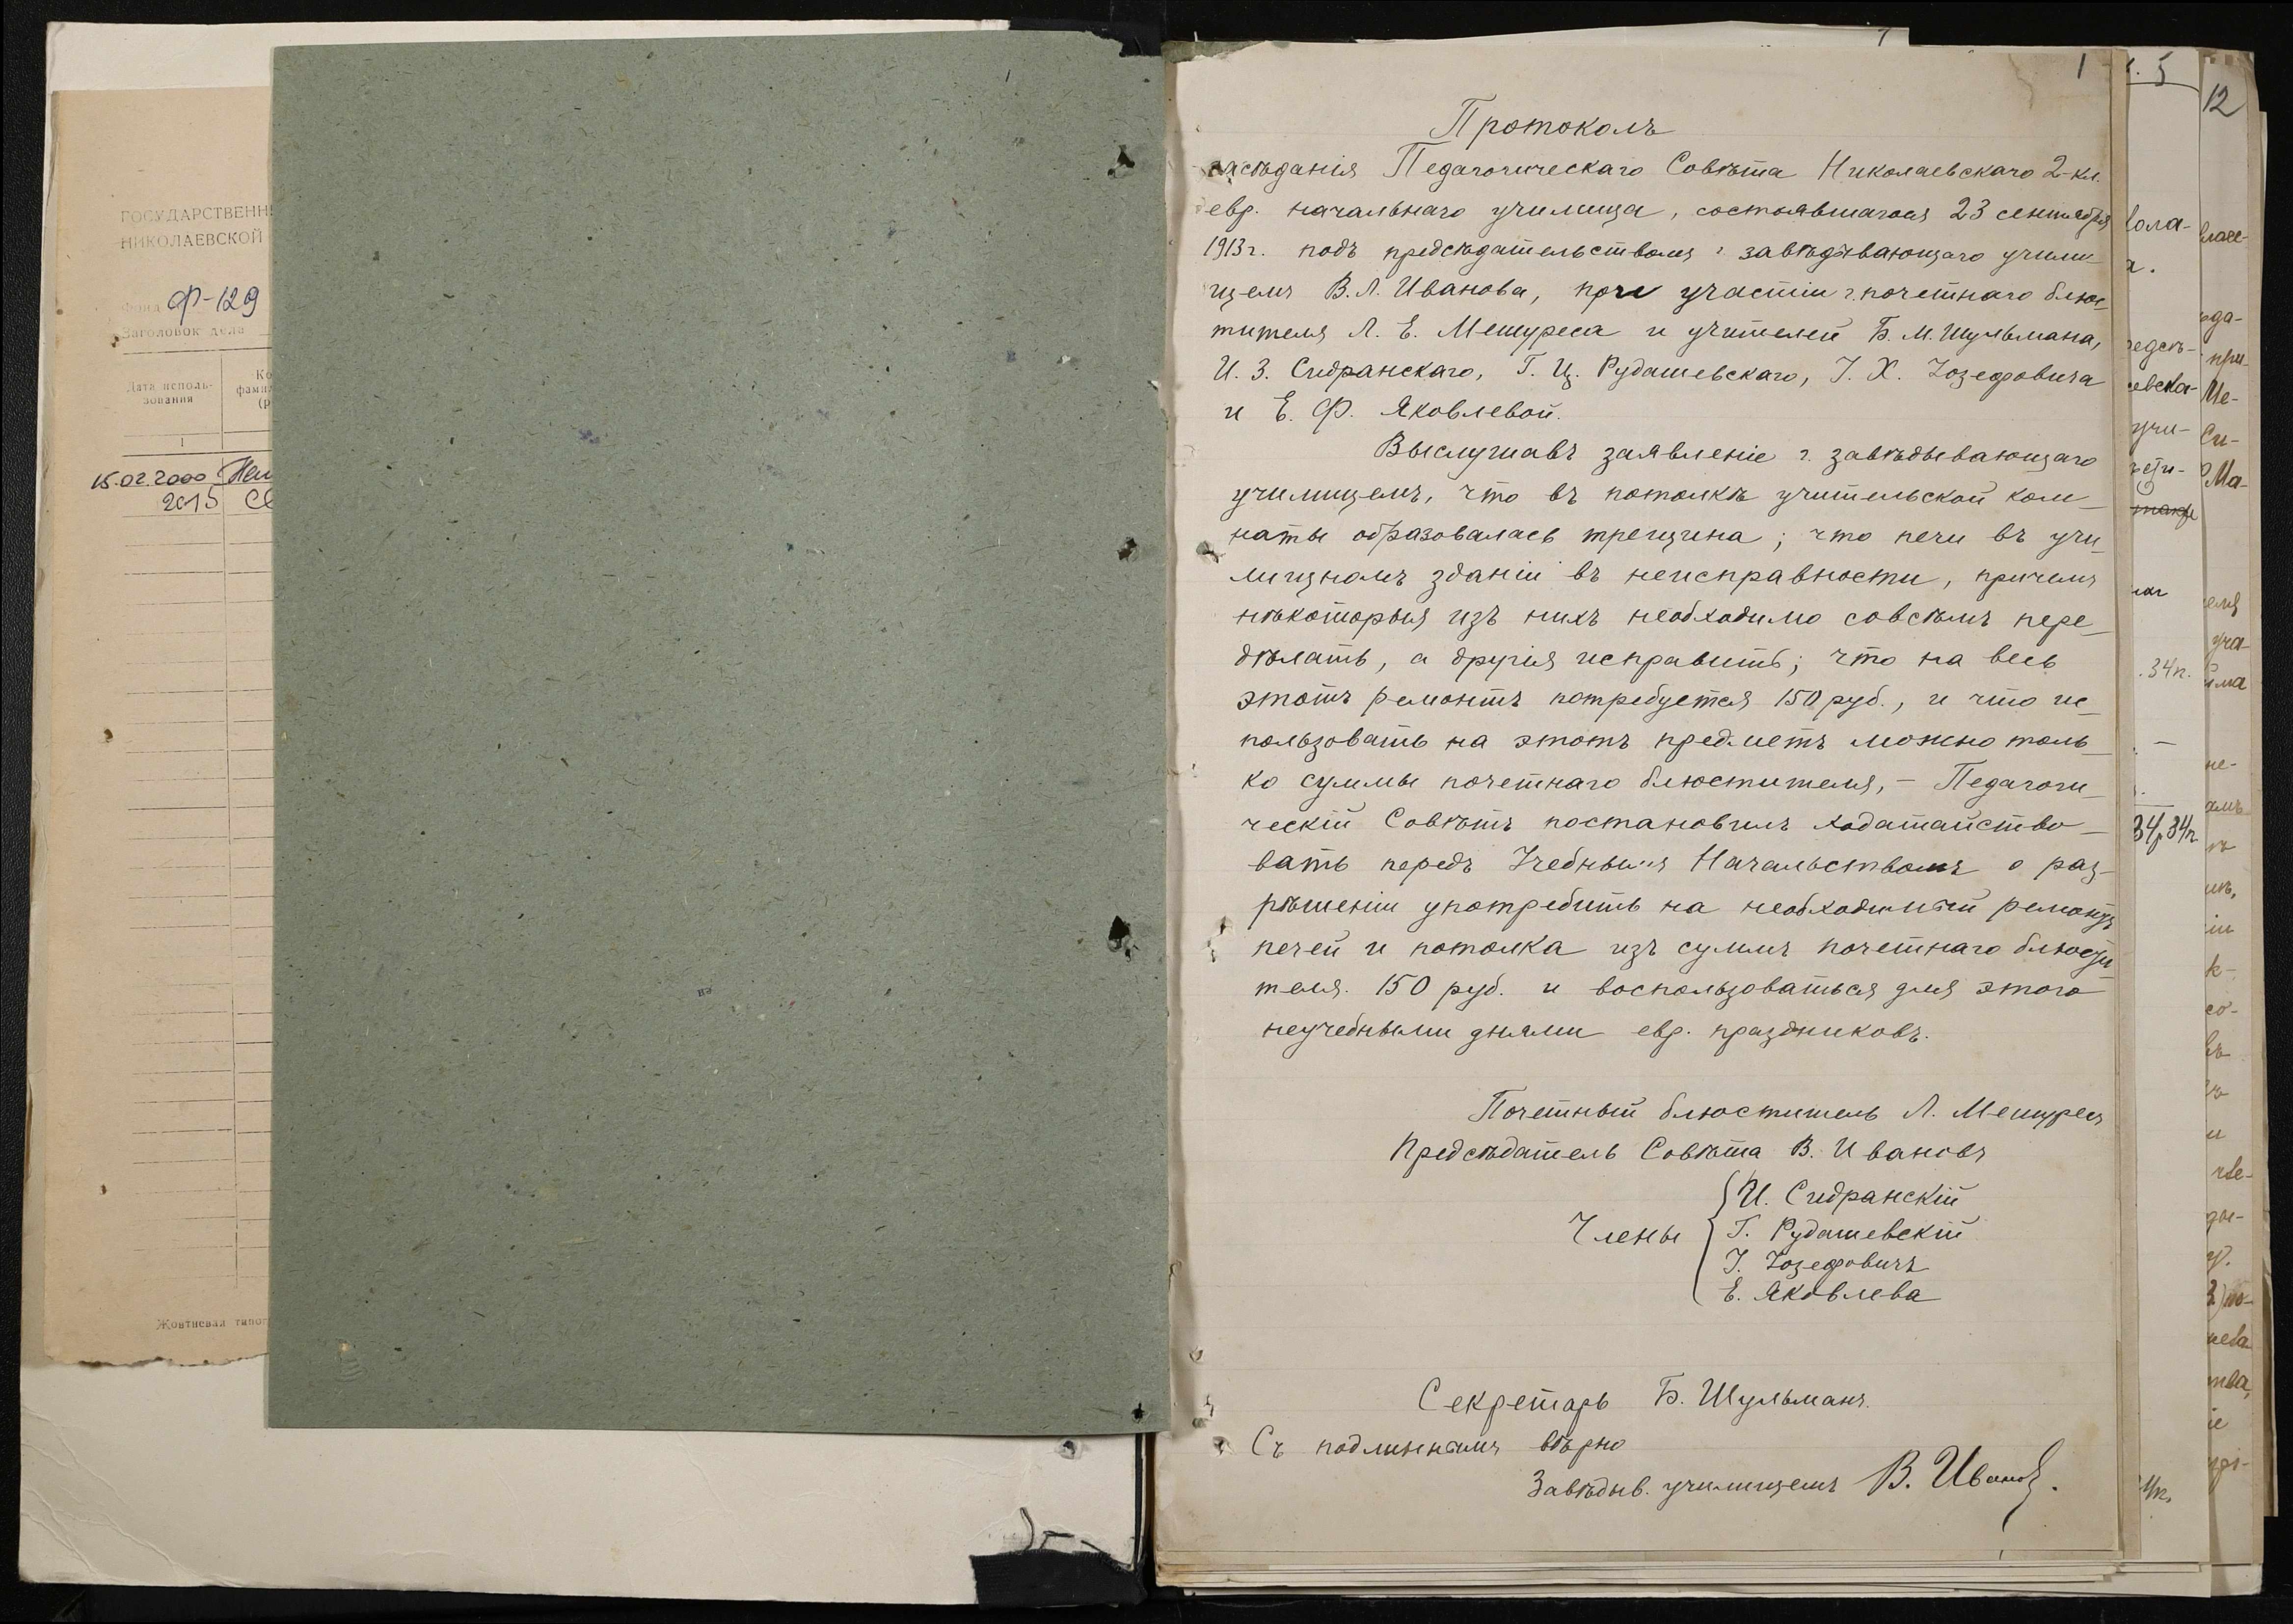 ГОСУДАРСТВЕНН
НИКОЛАЕВСКОЙ
Фонд Ф-129
Заголовок дела
Дата исполь-
зования
1
15.02.2000
2015
Жовтневая типог
1
Протоколъ
засѣданія Педагогическаго Совѣта Николаевскаго 2-кл.
евр. начальнаго училища, состоявшагося 23 сентября
1913г. подъ предсѣдательствомъ г. завѣдывающаго учили-
щемъ В.Л. Иванова, при участіи г. почетнаго блюс-
тителя Л. Е. Мешуреса и учителей Б. М. Шульмана,
И. З. Сидранскаго, Г. Ц. Рудашевскаго, І. Х. Іозефовича
и Е. Ф. Яковлевой.
Выслушавъ заявленіе г. завѣдывающаго
училищемъ, что въ потолкѣ учительской ком-
наты образовалась трещина; что печи въ учи-
лищномъ зданіи въ неисправности, причемъ
нѣкоторыя изъ нихъ необходимо совсѣмъ пере-
дѣлать, а другія исправить; что на весь
этотъ ремонтъ потребуется 150 руб., и что ис-
пользовать на этотъ предметъ можно толь-
ко суммы почетнаго блюстителя, – Педагоги-
ческій Совѣтъ постановилъ ходатайство-
вать передъ Учебнымъ Начальствомъ о раз-
рѣшеніи употребить на необходимый ремонтъ
печей и потолка изъ суммъ почетнаго блюсти-
теля 150 руб. и воспользоваться для этого
неучебными днями евр. праздниковъ.
Почетный блюститель Л. Мешуресъ
Предсѣдатель Совѣта В. Ивановъ
Члены
И. Сидранскій
Г. Рудашевскій
І. Іозефовичъ
Е. Яковлева
Секретарь Б. Шульманъ.
Съ подлиннымъ вѣрно
Завѣдыв. училищемъ В. Ивановъ.
5
34к.
34р34к
12